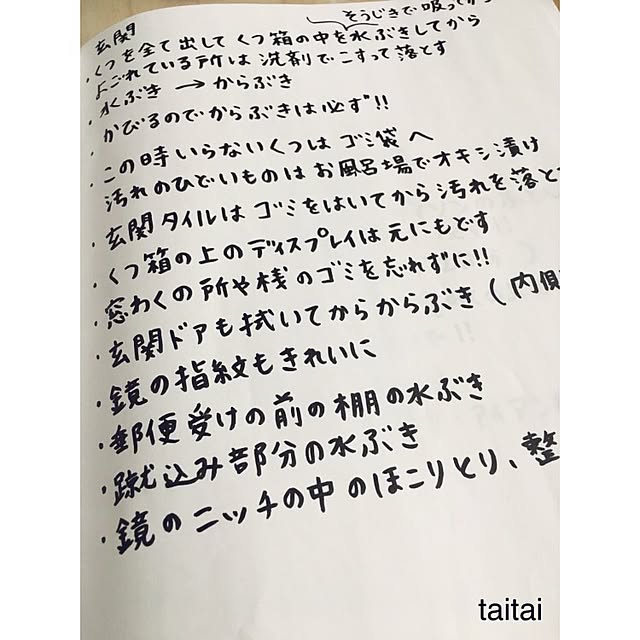 玄関
そうじきで吸ってから
・くつを全て出して くつ箱の中を水ぶきしてから
よごれている所は 洗剤でこすって落とす
・水ぶき → からぶき
・かびるのでからぶきは必ず!!
・この時いらないくつは ゴミ袋へ
汚れのひどいものは お風呂場でオキシ漬け
・玄関タイルは ゴミをはいてから 汚れを落と
・くつ箱の上のディスプレイは元にもどす
・窓わくの所や桟のゴミを忘れずに!!
・玄関ドアも拭いてからからぶき(内側
・鏡の指紋もきれいに
・郵便受けの前の棚の水ぶき
・蹴込み部分の水ぶき
・鏡のニッチの中のほこりとり、整
taitai